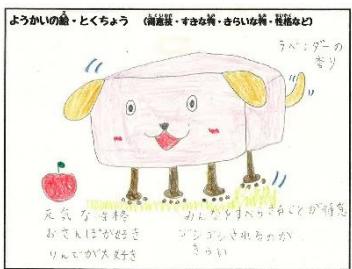 ようかいの絵・とくちょう （得意技・すきな物・きらいな物・性格など）
ラベンダーの
香り
元気な性格
おさんぽが好き
りんごが大好き
みんなをすべらせることが得意
ゴシゴシされるのが
きらい